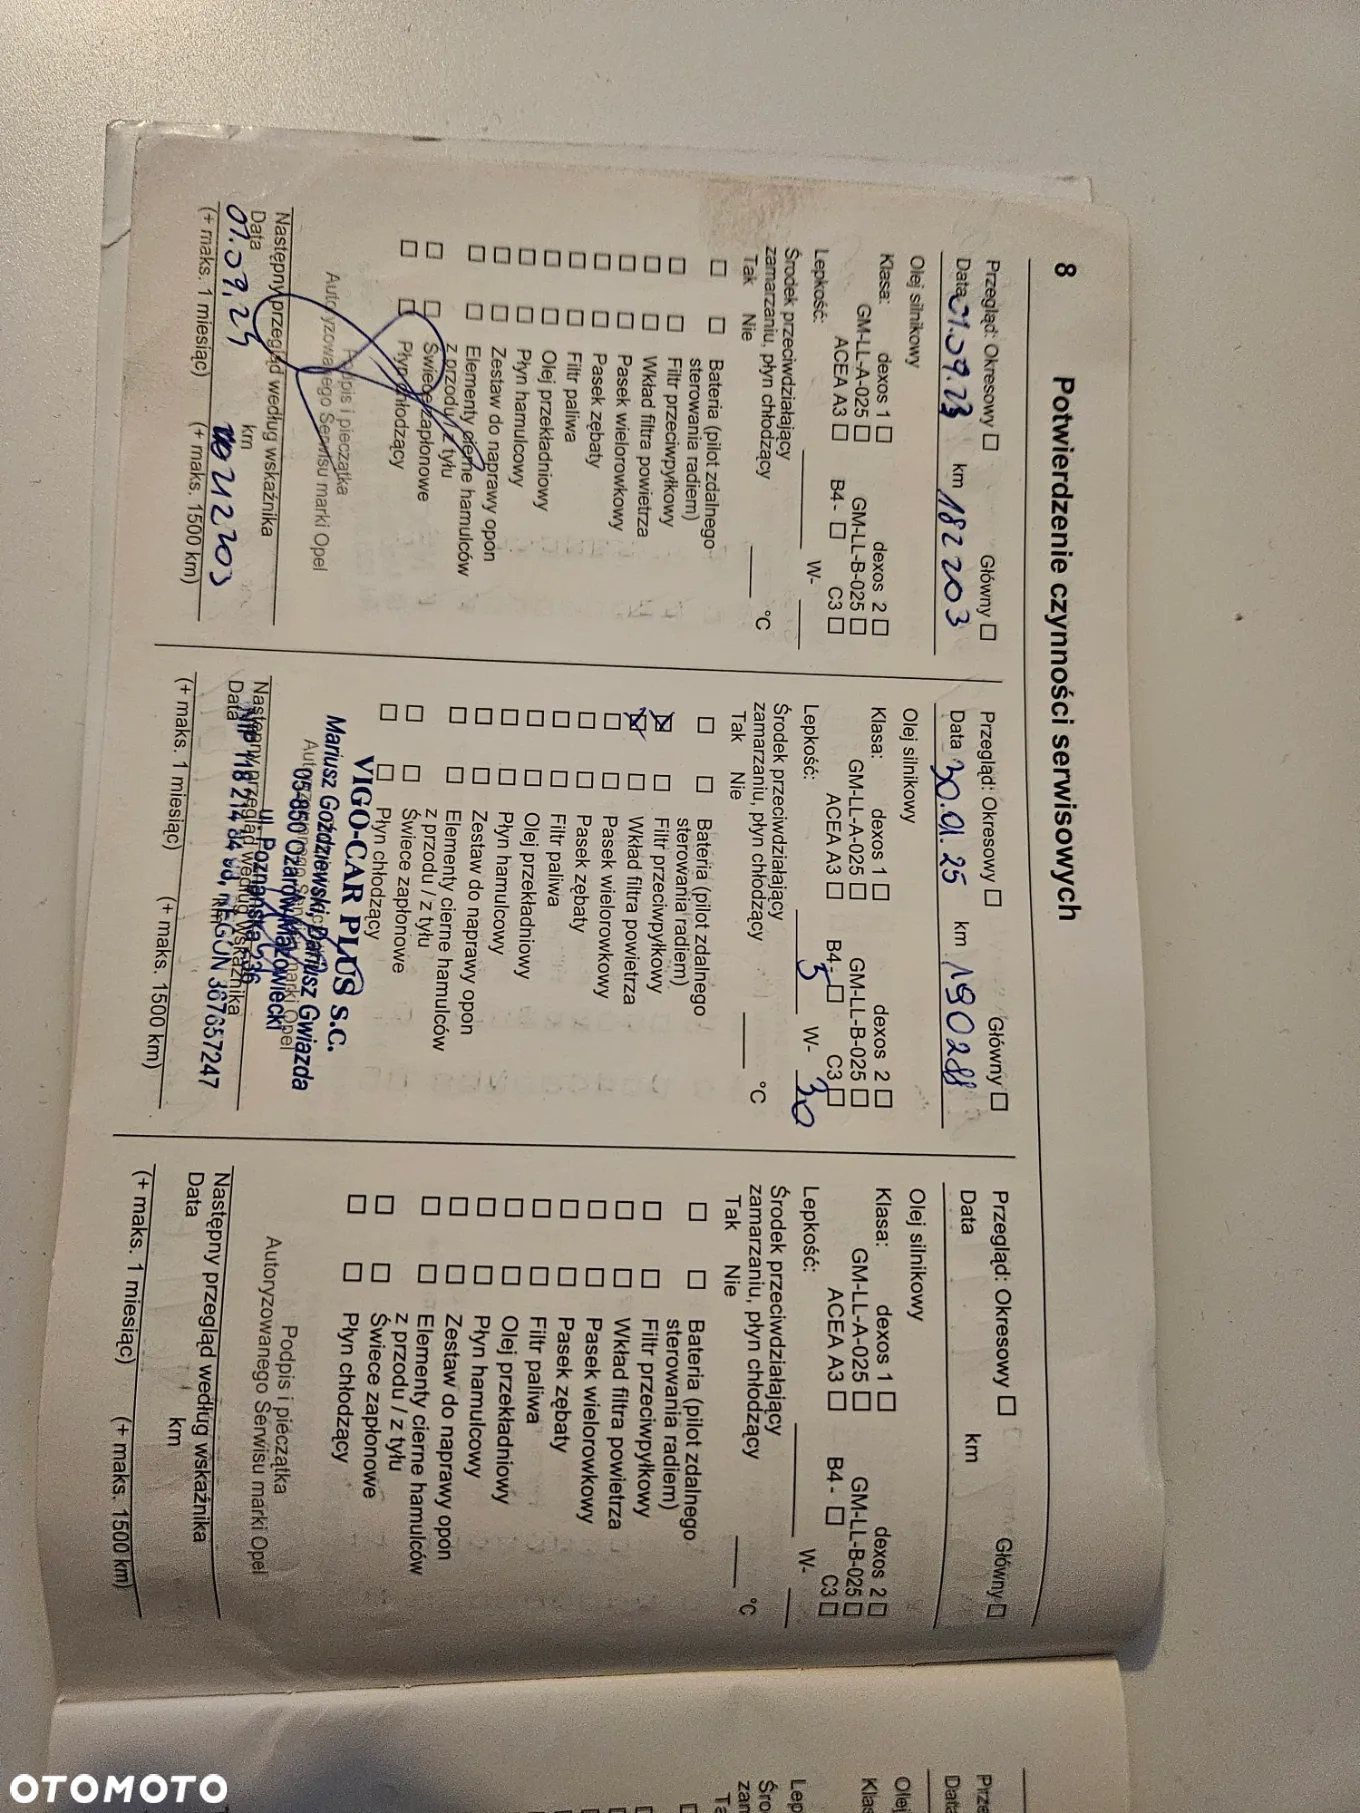 8 Potwierdzenie czynności serwisowych
Przegląd: Okresowy ☐ Główny ☐
Data 01.09.23 km 182 203
Olej silnikowy
Klasa: dexos 1 ☐ dexos 2 ☐
GM-LL-A-025 ☐ GM-LL-B-025 ☐
ACEA A3 ☐ B4 - ☐ C3 ☐
Lepkość: W-
Środek przeciwdziałający
zamarzaniu, płyn chłodzący °C
Tak Nie
☐ ☐ Bateria (pilot zdalnego
sterowania radiem)
☐ ☐ Filtr przeciwpyłkowy
☐ ☐ Wkład filtra powietrza
☐ ☐ Pasek wielorowkowy
☐ ☐ Pasek zębaty
☐ ☐ Filtr paliwa
☐ ☐ Olej przekładniowy
☐ ☐ Płyn hamulcowy
☐ ☐ Zestaw do naprawy opon
☐ ☐ Elementy cierne hamulców
z przodu / z tyłu
☐ ☐ Świece zapłonowe
☐ ☐ Płyn chłodzący
Podpis i pieczątka
Autoryzowanego Serwisu marki Opel
Następny przegląd według wskaźnika
Data km
01.09.24 212203
(+ maks. 1 miesiąc) (+ maks. 1500 km)
Przegląd: Okresowy ☐ Główny ☐
Data 30.01.25 km 190288
Olej silnikowy
Klasa: dexos 1 ☐ dexos 2 ☐
GM-LL-A-025 ☐ GM-LL-B-025 ☐
ACEA A3 ☐ B4 - ☐ C3 ☐
Lepkość: 5 W- 30
Środek przeciwdziałający
zamarzaniu, płyn chłodzący °C
Tak Nie
☐ ☐ Bateria (pilot zdalnego
sterowania radiem)
☒ ☐ Filtr przeciwpyłkowy
☒ ☐ Wkład filtra powietrza
☐ ☐ Pasek wielorowkowy
☐ ☐ Pasek zębaty
☐ ☐ Filtr paliwa
☐ ☐ Olej przekładniowy
☐ ☐ Płyn hamulcowy
☐ ☐ Zestaw do naprawy opon
☐ ☐ Elementy cierne hamulców
z przodu / z tyłu
☐ ☐ Świece zapłonowe
☐ ☐ Płyn chłodzący
VIGO-CAR PLUS S.C.
Mariusz Goździewski, Dariusz Gwiazda
05-850 Ożarów Mazowiecki
ul. Poznańska 236
NIP 118 214 84 98, REGON 367657247
Następny przegląd według wskaźnika
Data km
(+ maks. 1 miesiąc) (+ maks. 1500 km)
Przegląd: Okresowy ☐ Główny ☐
Data km
Olej silnikowy
Klasa: dexos 1 ☐ dexos 2 ☐
GM-LL-A-025 ☐ GM-LL-B-025 ☐
ACEA A3 ☐ B4 - ☐ C3 ☐
Lepkość: W-
Środek przeciwdziałający
zamarzaniu, płyn chłodzący °C
Tak Nie
☐ ☐ Bateria (pilot zdalnego
sterowania radiem)
☐ ☐ Filtr przeciwpyłkowy
☐ ☐ Wkład filtra powietrza
☐ ☐ Pasek wielorowkowy
☐ ☐ Pasek zębaty
☐ ☐ Filtr paliwa
☐ ☐ Olej przekładniowy
☐ ☐ Płyn hamulcowy
☐ ☐ Zestaw do naprawy opon
☐ ☐ Elementy cierne hamulców
z przodu / z tyłu
☐ ☐ Świece zapłonowe
☐ ☐ Płyn chłodzący
Podpis i pieczątka
Autoryzowanego Serwisu marki Opel
Następny przegląd według wskaźnika
Data km
(+ maks. 1 miesiąc) (+ maks. 1500 km)
OTOMOTO